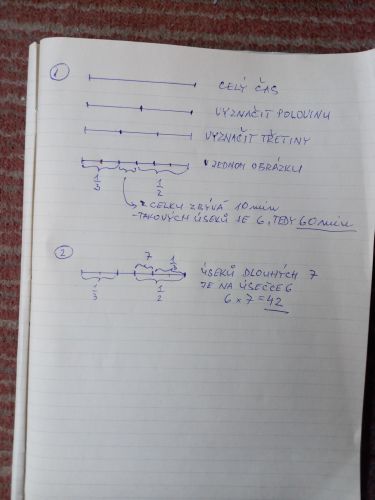 1
CELÝ ČAS
VYZNAČIT POLOVINU
VYZNAČIT TŘETINY
V JEDNOM OBRÁZKU
1/3
1/2
Z CELKU ZBÝVÁ 10 min
-TAKOVÝCH ÚSEKŮ JE 6, TEDY 60 min
2
7
1/3
1/3
1/2
ÚSEKŮ DLOUHÝCH 7
JE NA ÚSEČCE 6
6 x 7 = 42